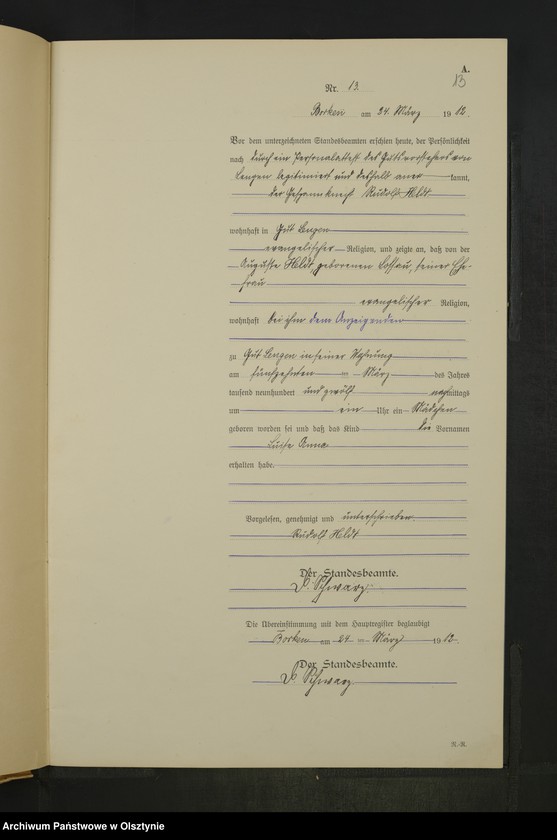 A.
13
Nr. 13.
Borken am 24. März 1912.
Vor dem unterzeichneten Standesbeamten erschien heute, der Persönlichkeit
nach durch ein Personalattest des Gutsvorstehers von
Lengen legitimiert und deshalb aner kannt,
der Gespannknecht Rudolf Heldt
wohnhaft in Gut Lengen
evangelischer Religion, und zeigte an, daß von der
Auguste Heldt, geborenen Lossau, seiner Ehe-
frau
evangelischer Religion,
wohnhaft bei ihm dem Anzeigenden
zu Gut Lengen in seiner Wohnung
am fünfzehnten März des Jahres
tausend neunhundert und zwölf nachmittags
um ein Uhr ein Mädchen
geboren worden sei und daß das Kind die Vornamen
Luise Anna
erhalten habe.
Vorgelesen, genehmigt und unterschrieben.
Rudolf Heldt
Der Standesbeamte.
Schwarz.
Die Übereinstimmung mit dem Hauptregister beglaubigt
Borken am 24 März 1912.
Der Standesbeamte.
Schwarz
Archiwum Państwowe w Olsztynie